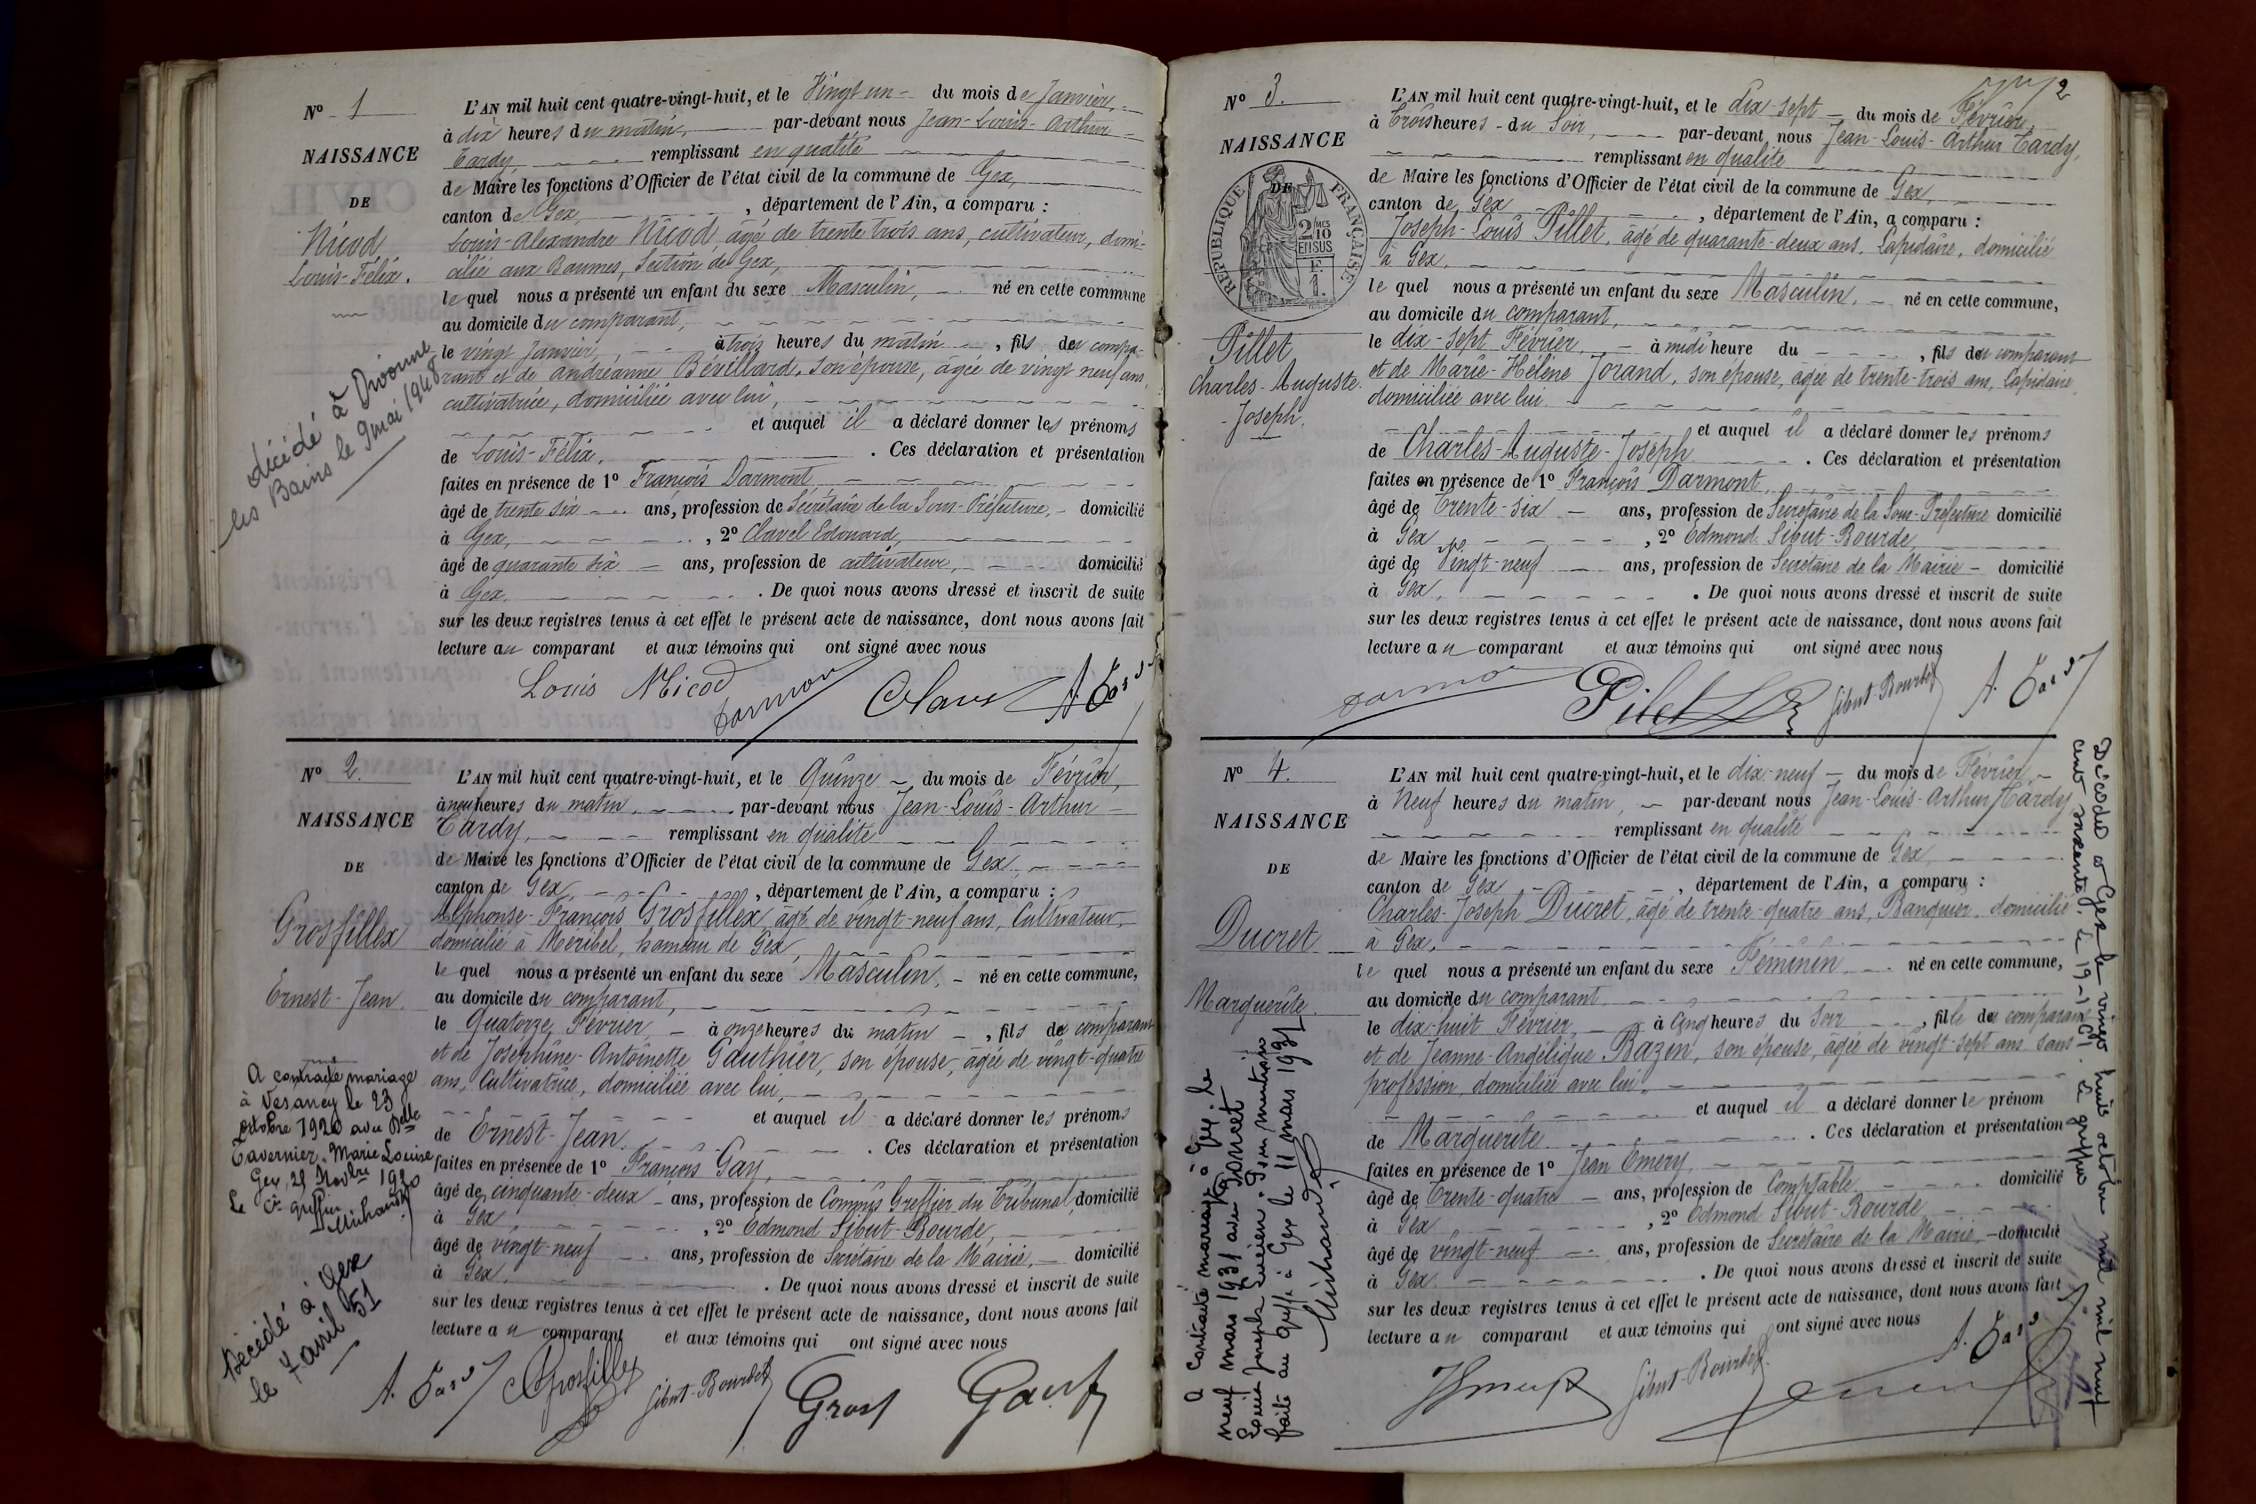 Nº 1
NAISSANCE
DE
Nicod
Louis-Félix.
décédé à Divonne
les Bains le 9 mai 1948
L'AN mil huit cent quatre-vingt-huit, et le Vingt un du mois de Janvier,
à dix heures du matin, par-devant nous Jean-Louis-Arthur
Tardy, remplissant en qualité
de Maire les fonctions d'Officier de l'état civil de la commune de Gex,
canton de Gex, département de l'Ain, a comparu :
Louis-Alexandre Nicod, âgé de trente trois ans, cultivateur, domi-
cilié aux Baumes, Section de Gex,
lequel nous a présenté un enfant du sexe Masculin, né en cette commune
au domicile du comparant,
le vingt Janvier, à trois heures du matin, fils du compa-
rant et de Andréanne Bévillard, son épouse, âgée de vingt neuf ans,
cultivatrice, domiciliée avec lui,
et auquel il a déclaré donner les prénoms
de Louis-Félix. Ces déclaration et présentation
faites en présence de 1º François Darmont,
âgé de trente six ans, profession de Secrétaire de la Sous-Préfecture, domicilié
à Gex, 2º Clavel Edouard,
âgé de quarante six ans, profession de cultivateur, domicilié
à Gex. De quoi nous avons dressé et inscrit de suite
sur les deux registres tenus à cet effet le présent acte de naissance, dont nous avons fait
lecture au comparant et aux témoins qui ont signé avec nous
Louis Nicod Darmont Clavel A. Tardy
Nº 2.
NAISSANCE
DE
Grosfillex
Ernest-Jean.
A contracté mariage
à Vesancy le 23
octobre 1920 avec Delle
Tavernier, Marie Louise
Gex, 29 Novbre 1920
Le Cis greffier
Michaud
Décédé à Gex
le 7 avril 51
L'AN mil huit cent quatre-vingt-huit, et le Quinze du mois de Février,
à neuf heures du matin, par-devant nous Jean-Louis-Arthur
Tardy, remplissant en qualité
de Maire les fonctions d'Officier de l'état civil de la commune de Gex,
canton de Gex, département de l'Ain, a comparu :
Alphonse-François Grosfillex, âgé de vingt-neuf ans, Cultivateur,
domicilié à Meribel, hameau de Gex,
lequel nous a présenté un enfant du sexe Masculin, né en cette commune,
au domicile du comparant,
le Quatorze Février, à onze heures du matin, fils du comparant
et de Joséphine-Antoinette Gauthier, son épouse, âgée de vingt-quatre
ans, Cultivatrice, domiciliée avec lui,
et auquel il a déclaré donner les prénoms
de Ernest-Jean. Ces déclaration et présentation
faites en présence de 1º François Gay,
âgé de cinquante-deux ans, profession de Commis Greffier du Tribunal, domicilié
à Gex, 2º Edmond Sibut-Bourde,
âgé de vingt-neuf ans, profession de Secrétaire de la Mairie, domicilié
à Gex. De quoi nous avons dressé et inscrit de suite
sur les deux registres tenus à cet effet le présent acte de naissance, dont nous avons fait
lecture au comparant et aux témoins qui ont signé avec nous
A. Tardy Grosfillex Sibut-Bourde
2
Nº 3.
NAISSANCE
DE
REPUBLIQUE FRANÇAISE
2/10 MES
EN SUS
Pillet
Charles-Auguste-
Joseph.
L'AN mil huit cent quatre-vingt-huit, et le dix-sept du mois de Février,
à Trois heures du Soir, par-devant nous Jean-Louis-Arthur Tardy,
remplissant en qualité
de Maire les fonctions d'Officier de l'état civil de la commune de Gex,
canton de Gex, département de l'Ain, a comparu :
Joseph-Louis Pillet, âgé de quarante-deux ans, Lapidaire, domicilié
à Gex,
lequel nous a présenté un enfant du sexe Masculin, né en cette commune,
au domicile du comparant,
le dix-sept Février, à midi heure du, fils du comparant
et de Marie-Hélène Jorand, son épouse, âgée de trente-trois ans, Lapidaire,
domiciliée avec lui.
et auquel il a déclaré donner les prénoms
de Charles-Auguste-Joseph. Ces déclaration et présentation
faites en présence de 1º François Darmont,
âgé de Trente-six ans, profession de Secrétaire de la Sous-Préfecture domicilié
à Gex, 2º Edmond Sibut-Bourde
âgé de Vingt-neuf ans, profession de Secrétaire de la Mairie domicilié
à Gex. De quoi nous avons dressé et inscrit de suite
sur les deux registres tenus à cet effet le présent acte de naissance, dont nous avons fait
lecture au comparant et aux témoins qui ont signé avec nous
Pilet Sibut-Bourde A. Tardy
Nº 4.
NAISSANCE
DE
Ducret
Marguerite.
A contracté mariage à Gex le
neuf mars 1931 avec Poncet
Louis Joseph Lucien. Pour mention
faite au Greffe à Gex le 11 mars 1931
Michaud
L'AN mil huit cent quatre-vingt-huit, et le dix-neuf du mois de Février,
à Neuf heures du matin, par-devant nous Jean-Louis-Arthur Tardy
remplissant en qualité
de Maire les fonctions d'Officier de l'état civil de la commune de Gex,
canton de Gex, département de l'Ain, a comparu :
Charles-Joseph Ducret, âgé de trente-quatre ans, Banquier, domicilié
à Gex,
lequel nous a présenté un enfant du sexe Féminin né en cette commune,
au domicile du comparant
le dix-huit Février, à Cinq heures du Soir, fille du comparant
et de Jeanne-Angélique Bazin, son épouse, âgée de vingt-sept ans, sans
profession, domiciliée avec lui.
et auquel il a déclaré donner le prénom
de Marguerite. Ces déclaration et présentation
faites en présence de 1º Jean Emery,
âgé de Trente-quatre ans, profession de Comptable domicilié
à Gex, 2º Edmond Sibut-Bourde
âgé de vingt-neuf ans, profession de Secrétaire de la Mairie domicilié
à Gex. De quoi nous avons dressé et inscrit de suite
sur les deux registres tenus à cet effet le présent acte de naissance, dont nous avons fait
lecture au comparant et aux témoins qui ont signé avec nous
Sibut-Bourde A. Tardy
Décédée à Gex le vingt huit octobre mil neuf
cent soixante. Le 19-1-61. Le greffier